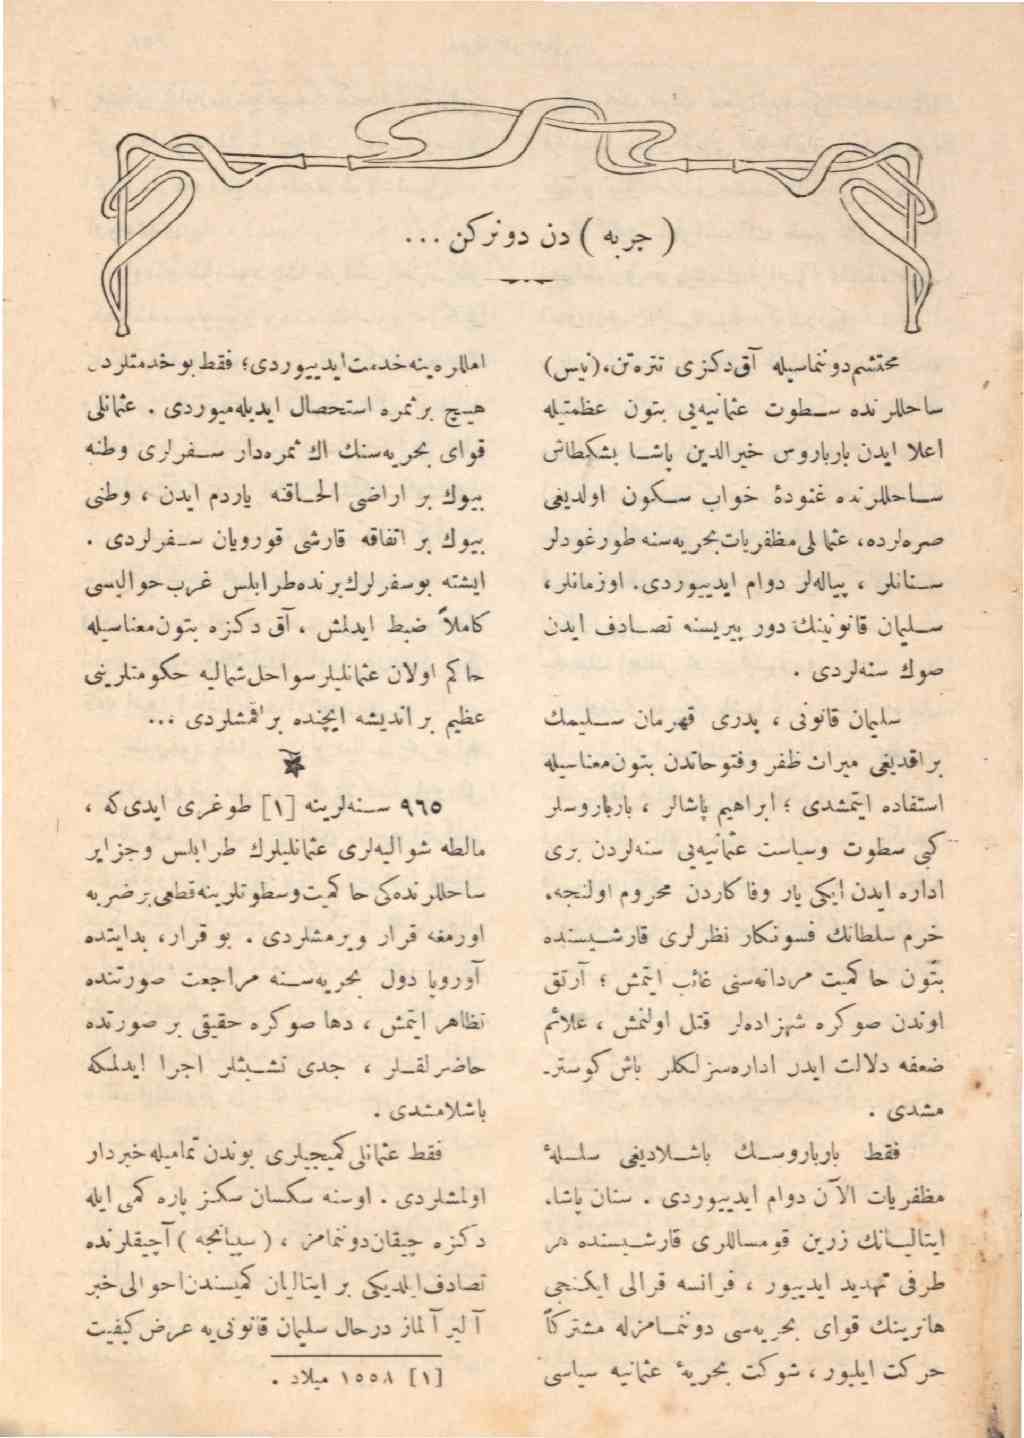 ( جربه ) دن دونركن ...
محتشم دوننماسيله آق دكزى تتره تن، (نيس)
ساحللرنده سطوت عثمانيه يى بتون عظمتيله
اعلا ايدن بارباروس خيرالدين پاشا بشكطاش
ساحللرنده غنودۀ خواب سكون اولديغى
صره لرده، عثمانلى مظفريات بحريه سنه طورغودلر
سنانلر ، پياله لر دوام ايدييوردى. اوزمانلر،
سليمان قانونينك دور پيريسنه تصادف ايدن
صوك سنه لردى .
سليمان قانونى ، پدرى قهرمان سليمك
براقديغى ميراث ظفر وفتوحاتدن بتون معناسيله
استفاده ايتمشدى ؛ ابراهيم پاشالر ، بارباروسلر
كبى سطوت وسياست عثمانيه يى سنه لردن برى
اداره ايدن ايكى يار وفا كاردن محروم اولنجه،
خرم سلطانك فسونكار نظرلرى قارشيسنده
بتون حاكميت مردانه سنى غائب ايتمش ؛ آرتق
اوندن صوكره شهزاده لر قتل اولنمش ، علائم
ضعفه دلالت ايدر اداره سزلكلر باش كوستر-
مشدى .
فقط بارباروسك باشلاديغى سلسلۀ
مظفريات الآن دوام ايدييوردى . سنان پاشا،
ايتاليانك زرين قومساللرى قارشيسنده هر
طرفى تهديد ايدييور ، فرانسه قرالى ايكنجى
هانرينك قواى بحريه سى دوننمامزله مشتركاً
حركت ايليور ، شوكت بحريۀ عثمانيه سياسى
امللره ينه خدمت ايدييوردى؛ فقط بو خدمتلردن
هيچ بر ثمره استحصال ايديله ميوردى . عثمانلى
قواى بحريه سنك اك ثمره دار سفرلرى وطنه
بيوك بر اراضى الحاقنه ياردم ايدن ، وطنى
بيوك بر اتفاقه قارشى قورويان سفرلردى .
ايشته بوسفرلرك برنده طرابلس غرب حواليسى
كاملاً ضبط ايدلمش ، آق دكزه بتون معناسيله
حاكم اولان عثمانليلر سواحل شماليه حكومتلرينى
عظيم بر انديشه ايچنده براقمشلردى ...
٩٦٥ سنه لرينه [١] طوغرى ايدى كه ،
مالطه شواليه لرى عثمانليلرك طرابلس وجزاير
ساحللرنده كى حاكميت وسطوتلرينه قطعى بر ضربه
اورمغه قرار ويرمشلردى . بو قرار، بدايتده
آوروپا دول بحريه سنه مراجعت صورتنده
تظاهر ايتمش ، دها صوكره حقيقى بر صورتده
حاضرلقلر ، جدى تشبثلر اجرا ايدلمكه
باشلامشدى .
فقط عثمانلى كميجيلرى بوندن تماميله خبردار
اولمشلردى . اوسنه سكسان سكز پاره كمى ايله
دكزه چيقان دوننمامز ، ( سپيانجه ) آچيقلرنده
تصادف ايلديكى بر ايتاليان كميسندن احوالى خبر
آلير آلماز درحال سليمان قانونى يه عرض كيفيت
[١] ١٥٥٨ ميلاد .